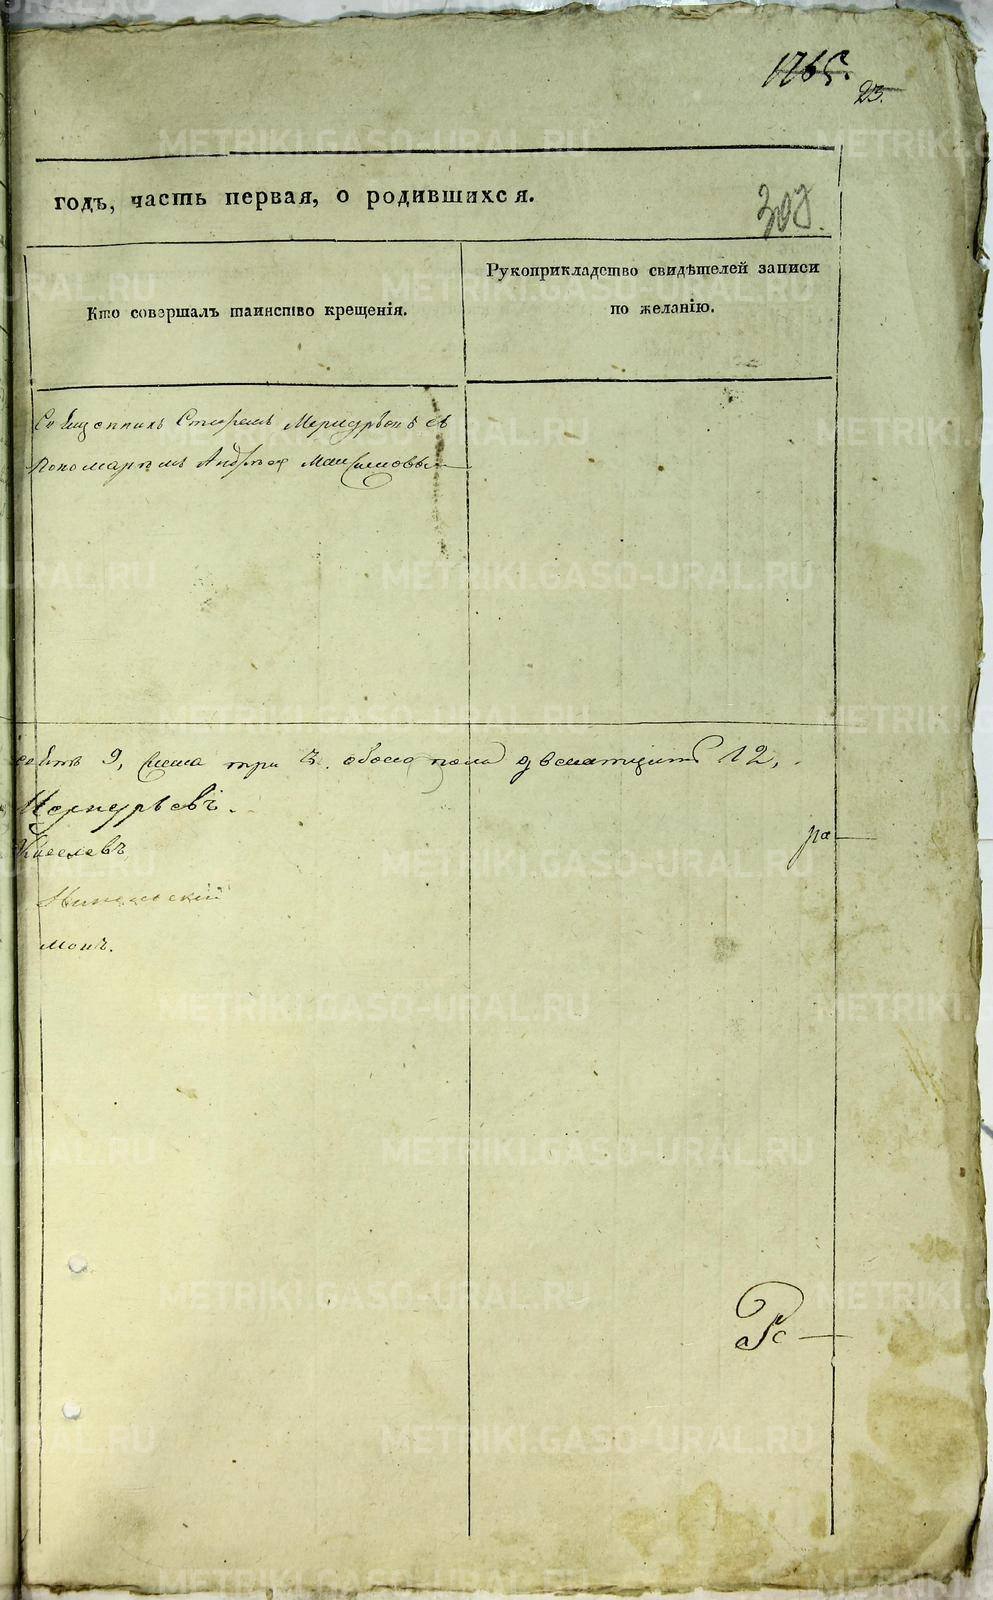 1765.
23.
308.
годъ, часть первая, о родившихся.
Кто совершалъ таинство крещенія.
Рукоприкладство свидѣтелей записи
по желанію.
Священникъ Стефанъ Меркурьевъ съ
Пономаремъ Андреемъ Максимовымъ
9, женска три 3. обоего пола двенатцать 12,
Меркурьевъ.
Киселевъ
ра
Никольскій
монъ.
Ра
METRIKI.GASO-URAL.RU